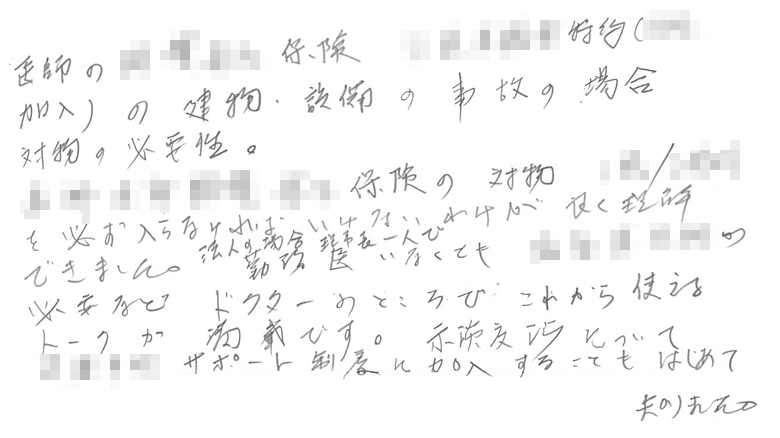 医師の 保険 特約(
加入)の建物・設備の事故の場合
対物の必要性。
保険の対物
を必ず入らなければいけないわけが良く理解
できました。法人の場合理事長一人で
勤務医いなくても の
必要など ドクターのところで これから使える
トークが満載です。示談交渉について
サポート制度に加入することもはじめて
知りました